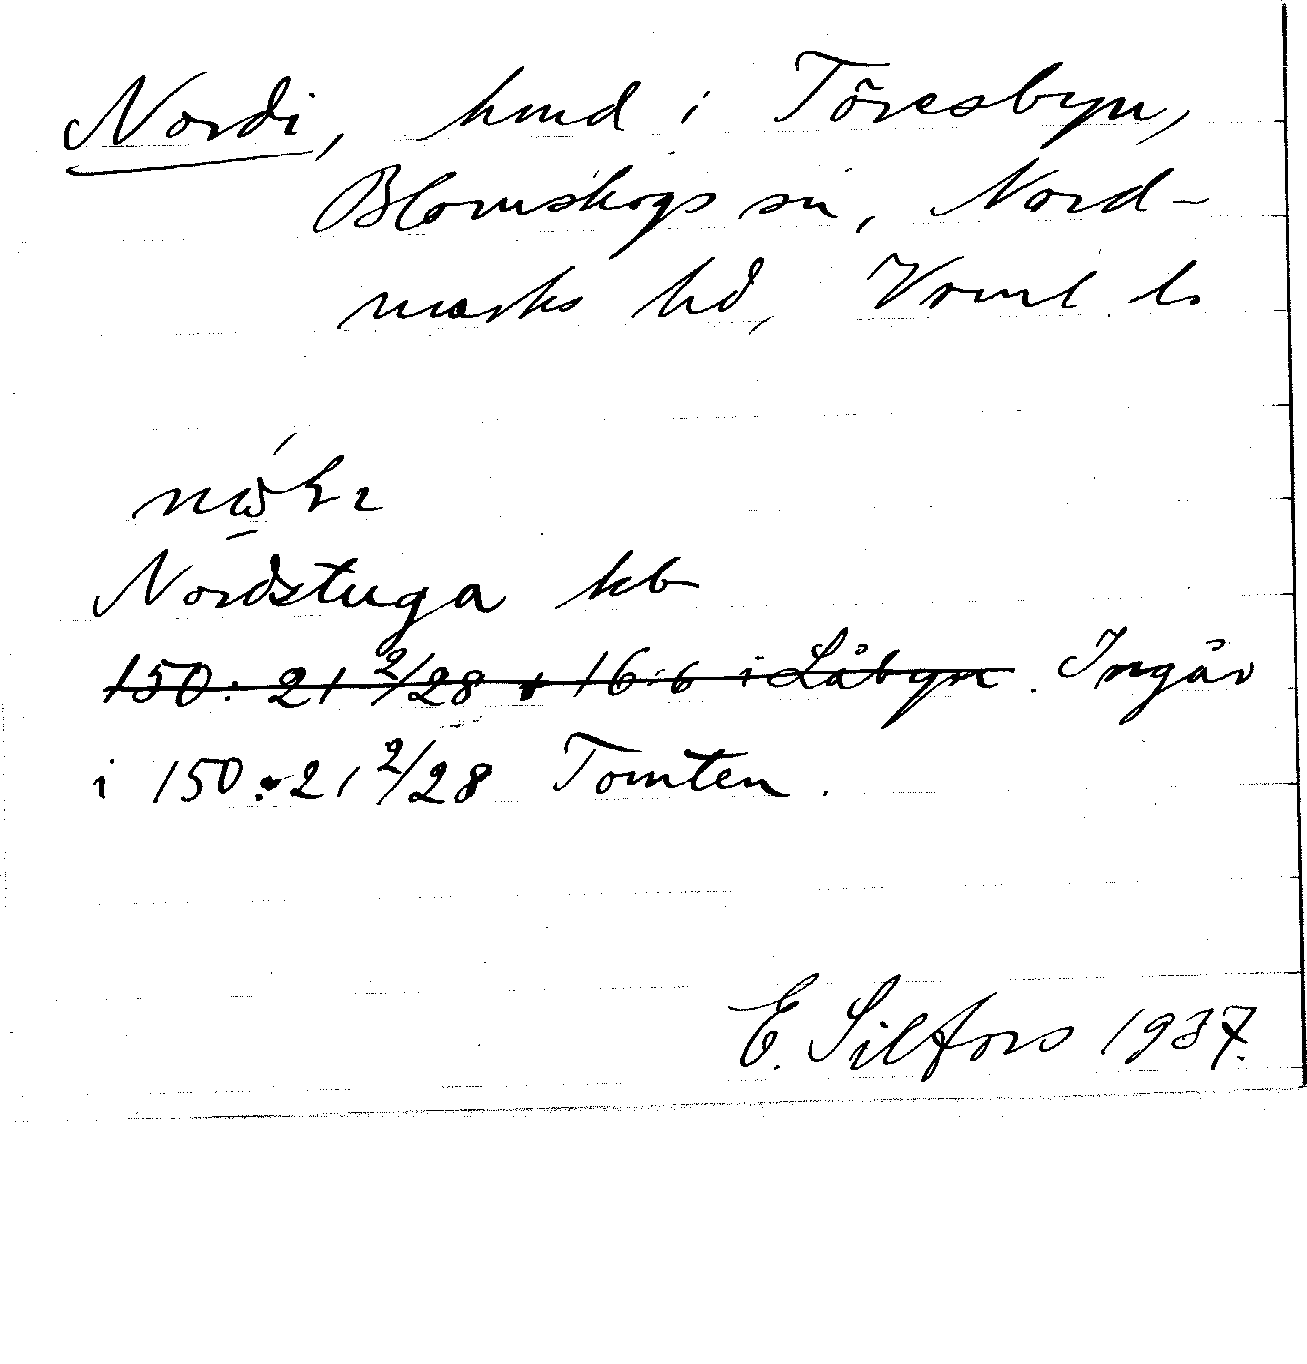 Nordi, hmd i Töresbyn,
Blomskogs sn, Nord-
marks hd, Vrml l.
Nordstuga kb
150:21 2/28 + 16:6 i Låbyn. Ingår
i 150:21 2/28 Tomten.
E. Silfors 1937.